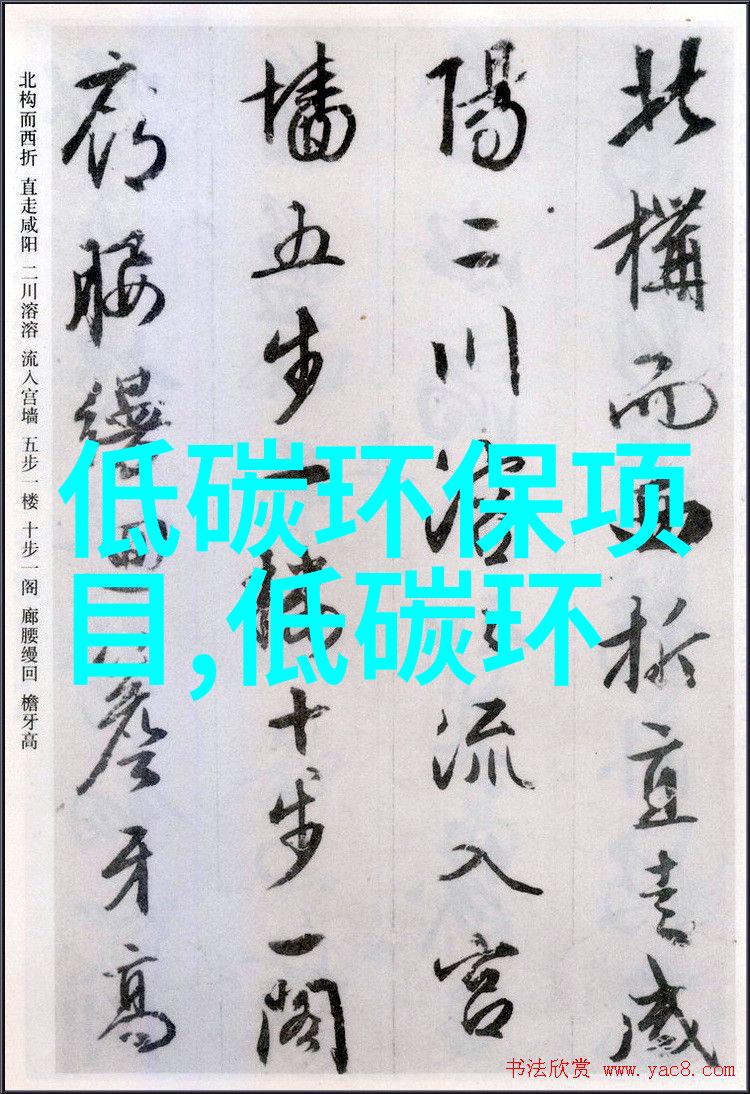 北構而西折直走咸
陽二川溶々流入宫
墻五步一樓十步一閣
廊腰縵迴簷牙高
北构而西折 直走咸阳 二川溶溶 流入宫墙 五步一楼 十步一阁 廊腰缦回 檐牙高
低碳环保项
目,低碳环
书法欣赏 www.yac8.com